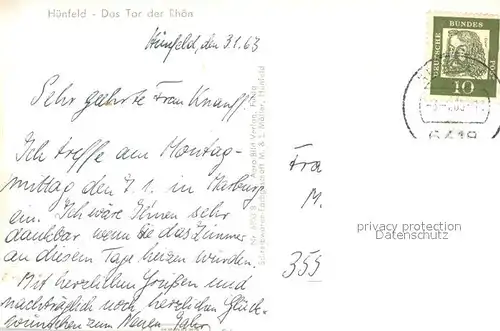 Hünfeld - Das Tor der Rhön
Hünfeld, den 3.1.63
Sehr geehrte Frau Knauff!
Ich treffe am Montag-
mittag den 7.1. in Marburg
ein. Ich wäre Ihnen sehr
dankbar wenn Sie das Zimmer
an diesem Tage heizen würden.
Mit herzlichen Grüßen und
nachträglich noch herzlichen Glück-
wünschen zum Neuen Jahr
M. & L. Möller, Hünfeld
DEUTSCHE BUNDES POST
10
6418
Fra
M.
355
privacy protection
Datenschutz